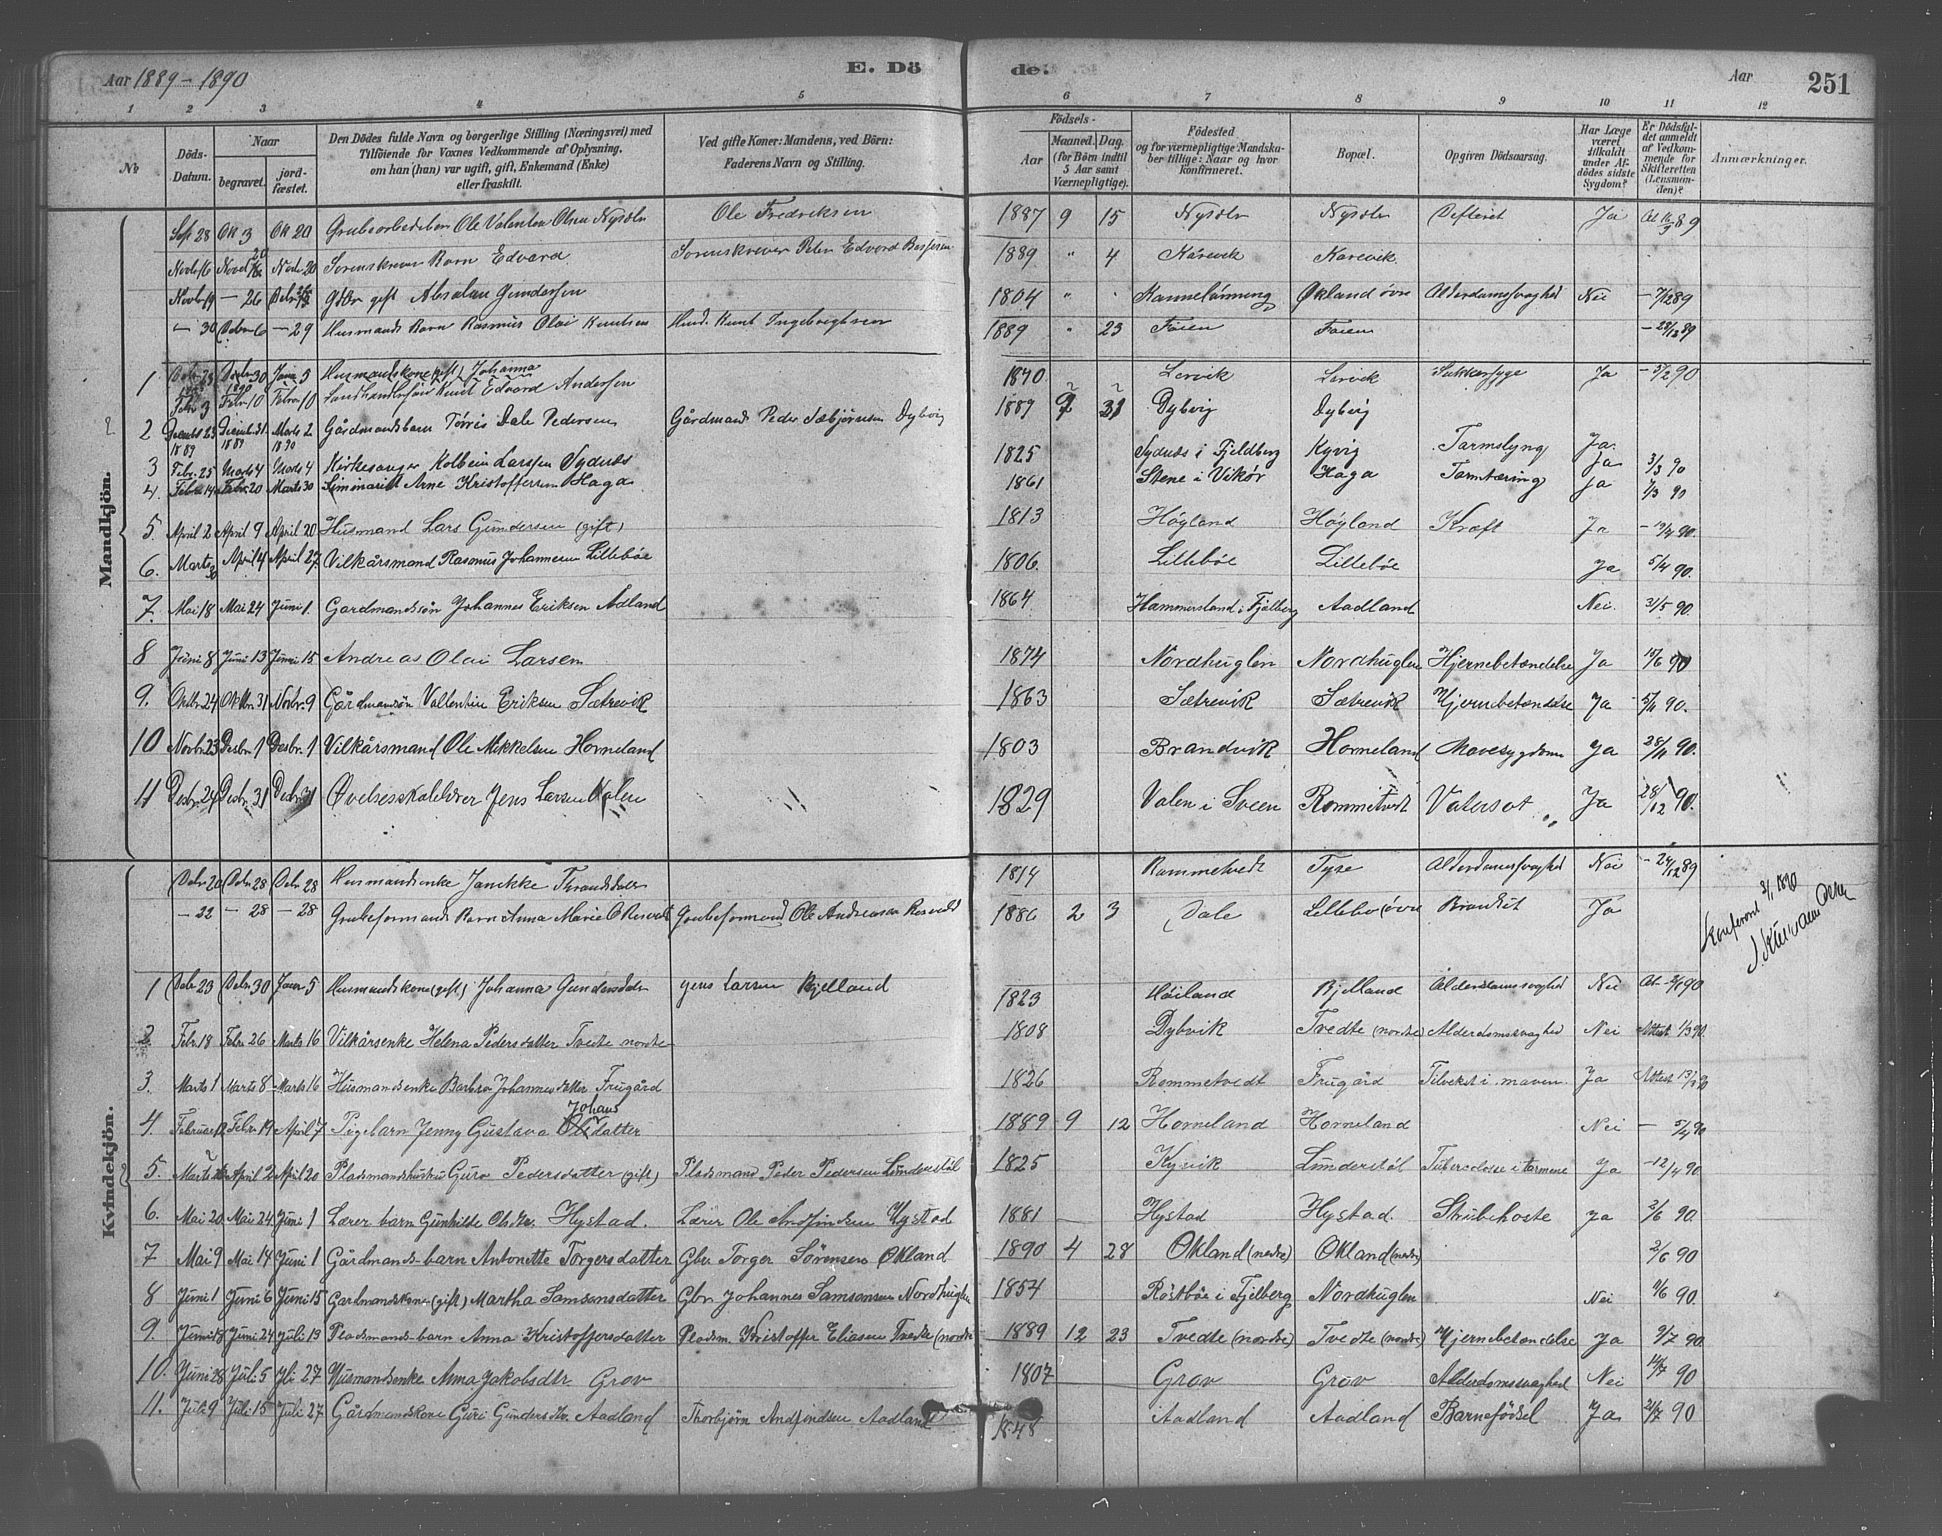 Aar 1889-1890 E. Döde. Aar 251
1 2 3 4 5 6 7 8 9 10 11 12
No
Döds-Datum.
Naar
begravet.
jordfæstet.
Den Dödes fulde Navn og borgerlige Stilling (Næringsvei) med
Tilföiende for Voxnes Vedkommende af Oplysning,
om han (hun) var ugift, gift, Enkemand (Enke)
eller fraskilt.
Ved gifte Koner: Mandens, ved Börn:
Faderens Navn og Stilling.
Födsels-
Aar
Maaned. Dag.
(for Börn indtil 5 Aar samt Værnepligtige).
Födested
og for værnepligtige Mandskaber tillige: Naar og hvor konfirmeret.
Bopæl.
Opgiven Dödsaarsag.
Har Læge været tilkaldt under Afdödes sidste Sygdom?
Er Dödsfaldet anmeldt af Vedkommende for Skifteretten (Lensmanden)?
Anmærkninger.
Mandkjön.
Sept 28 Ok 3 Ok 20 Ole Valentin Olsen Nysäter Ole Fredriksen 1887 9 15 Nysäter Nysäter Difterit Ja
Novbr 16 Novbr 20 Sorenskriver Barn Edvard Sorenskriver Peter Edvard 1889 " 4 Kårevik Karevik
Novbr 19 - 26 gift Absalon Gundersen 1804 " Økland övre Alderdomssvaghed Nei - 7/12 89
- 30 Debr 6 - 29 Husmands Barn Rasmus Olai Knutsen Husm. Knut Ingebrigtsen 1889 " 23 Foien Foien - 28/12 89
1 Husmandskone (gift) Johanna 1840 Lervik Lervik Sukkersyge Ja - 3/2 90
Febr 3 Febr 10 Febr 10 Knut Edvard Andersen 1889 31 Dybvig Dybvig
2 Decembr 23 1889 Decembr 31 1889 Marts 2 1890 Gårdmandsbarn Törris Dale Pedersen Gårdmand Peder Dybvig
3 Febr. 25 Marts 4 Marts 4 Kirkesanger Kolbein Larssen Sydnæs 1825 Sydnæs i Fjeldberg Kyvig Tarmslyng Ja 3/3 90
4. Febr. 14 Febr. 20 Marts 30 Seminarist Arne Kristoffersen Haga 1861 Stene i Vikör Haga Ja 7/3 90
5. April 2 April 9 April 20 Husmand Lars Gundersen (gift) 1813 Höyland Höyland Kræft Ja
6. Marts 30 April 4 April 27 Vilkårsmand Rasmus Johannesen Lilleböe 1806. Lillebøe Lillebøe Ja 5/4 90.
7. Mai 18 Mai 24 Juni 1. Gardmandssön Johannes Eriksen Adland 1864 Hammersland i Fjelberg Aadland Nei. 31/5 90.
8 Juni 8 Juni 13 Juni 15 Andreas Olai Larsen 1874 Nordhuglen Nordhuglen Hjernebetændelse Ja 15/6 90
9. Oktbr 24 Oktbr. 31 Novbr. 9 Gårdmandsön Vallentin Eriksen Sætrevik 1863 Sætrevik Sætrevik Hjernebetændelse Ja 5/11 90.
10 Novbr. 23 Desbr. 1 Desbr. 1 Vilkårsmand Ole Mikkelsen Horneland 1803 Brandvik Horneland Mavesygdom Ja 28/11 90.
11 Desbr. 24 Desbr. 31 Desbr. 31 Jens Larsen Valen 1829 Valen i Sveen Rommetvedt Vatersot Ja 28/12 90.
Kvindekjön.
Debr 20 Debr 28 Debr 28 Husmandsenke Janikke 1814 Rommetvedt Tyse Alderdomssvaghed Nei - 24/12 89
- 22 - 28 - 28 Grubeformands Barn Anna Marie Grubeformand Ole Andreasen Rosvold 1886 2 3 Dale Lillebø (övre Ja
Konfereret 1890
1 Debr 23 Debr. 30 Janr 5 Husmandskone (gift) Johanna Gundersdatter Jens Larsen Bjelland 1823 Höiland Bjelland Alderdomssvaghed Nei
2. Febr 18 Febr. 26 Marts 16 Vilkårsenke Helena Pedersdatter Tvedte nordre 1808 Dybvik Tvedte (nordre) Alderdomssvaghed Nei Attest 1/3 90.
3. Marts 1 Marts 8 Marts 16 Husmandsenke Barbro Johannesdatter Frugård 1826 Rommetvedt Frugård Tilvekst i maven. Ja Attest 13/3 90
4. Februar Febr. 19 April 7 Pigebarn Jenny Gustava Johansdatter 1889 9 12 Horneland Horneland Nei
5. Marts April 2 April 20 Pladsmandshustru Guro Pedersdatter (gift) Pladsmand Peder Pedersen Lunderstöl 1825 Kyvik Lunderstöl Tuberculose i tarmene Ja - 12/4 90
6. Mai 20 Mai 24 Juni 1 Lærer barn Gunhilde Olsdtr. Hystad. Lærer Ole Andfindsen Hystad 1881 Hystad Hystad. Strubehoste Ja 2/6 90.
7 Mai 9 Mai 14 Juni 1 Gårdmands-barn Antonette Torgersdatter Gbr Torger Sörensen Økland 1890 4 28 Økland (nedre) Økland (nedre) 2/6 90
8 Juni 1 Juni 6 Juni 15 Gardmandskone (gift) Martha Samsonsdatter Gbr Johannes Samsonsen Nordhuglen 1854 Röstböe i Fjelberg Nordhuglen Nei 11/6 90.
9. Juni 18 Juni 24 Juli 13 Pladsmands-barn Anna Kristoffersdatter Pladsm. Kristoffer Eliasen Tvedte (nordre 1889 12 23 Tvedte (nordre) Tvedte (nordre) Hjernebetændelse Ja 9/7 90.
10. Juni 28 Juli 5 Juli 27 Husmandsenke Anna Jakobsdtr. Grov 1807 Grov Grov Alderdomssvaghed Nei 14/7 90
11. Juli 9 Juli 15 Juli 27 Gårdmandskone Guri Gundersdtr. Aadland Thorbjörn Andfindsen Aadland 1848 Aadland Aadland Barnefödsel Ja 21/7 90